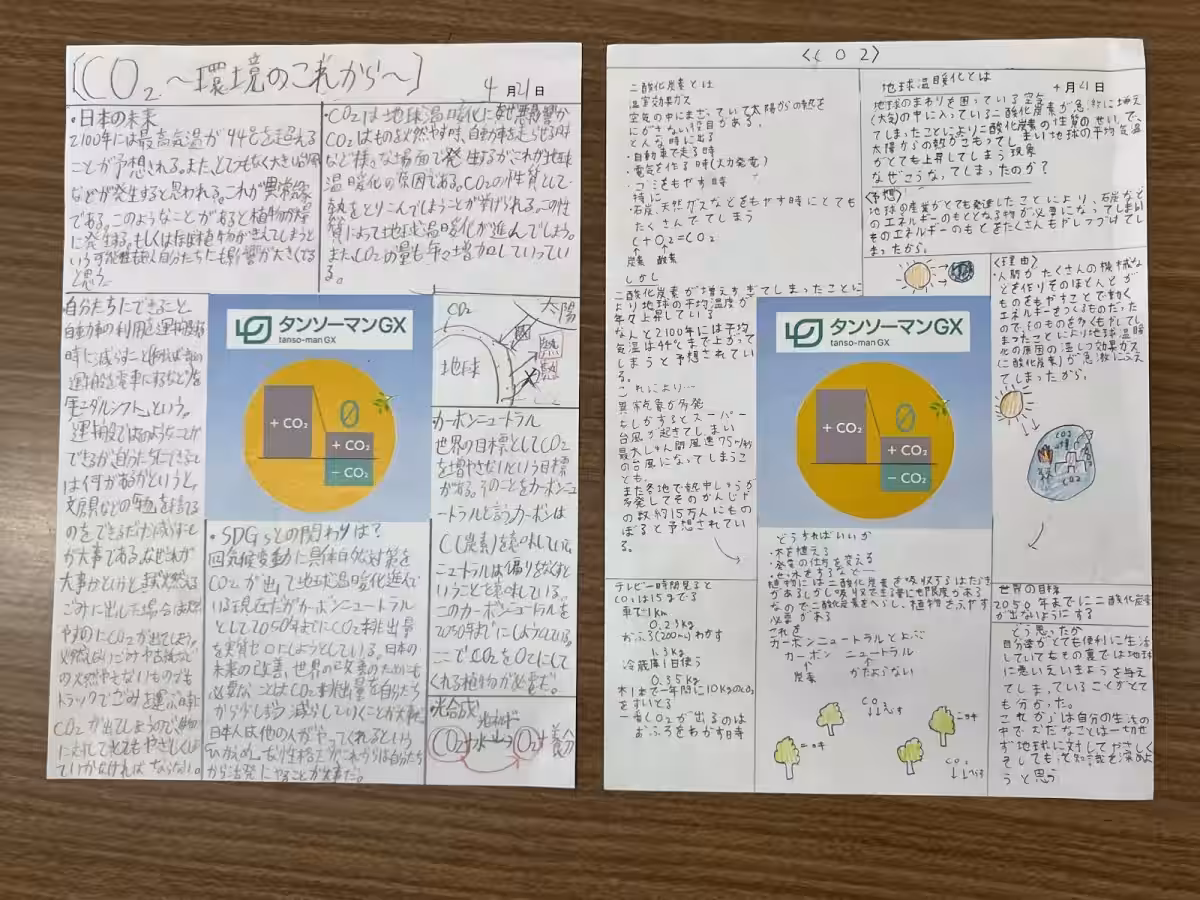 [CO₂ ～環境のこれから～]
4月21日
・日本の未来
2100年には最高気温が44℃を超える
ことが予想される。また、とてつもなく大きい台風
などが発生すると思われる。これが異常気象
である。このようなことがあると植物が
に発生する。もしくは在来植物がきえてしまうと
いう可能性も
自分たちにも影響が大きくでる
と思う。
・CO₂は地球温暖化になぜ悪影響か
CO₂はものを燃やす時、自動車を走らせる時
など様々な場面で発生するがこれが地球
温暖化の原因である。CO₂の性質として
熱をとりこんでしまうことが挙げられる。この性
質によって地球温暖化が進んでしまう。
またCO₂の量も年々増加していってい
る。
自分たちにできること
自動車の利用を運搬する
時に減らすこと(例えば
運搬を電車にするなど)を
「モーダルシフト」という。
運搬ではこのようなことが
できるが自分たちにできること
は何があるかというと、
文房具などの物を捨てる
のをできるだけ減らすこと
が大事である。なぜこれが
大事かというと
燃える
ごみに出した場合は
やすのにCO₂が出てしまう。
トラックでごみを運ぶ時に
CO₂が出てしまうので
ていかなければならない。
タンソーマンGX
tanso-man GX
+ CO₂
0
+ CO₂
− CO₂
CO₂
太陽
地球
熱
熱
カーボンニュートラル
世界の目標としてCO₂
を増やさないという目標
がある。そのことをカーボンニュ
ートラルと言う。カーボンは
C(炭素)を意味していて
ニュートラルは偏りをなくすと
いうことを意味している。
このカーボンニュートラルを
2050年までにしようとしている。
ここでCO₂を0にして
くれる植物が必要だ。
・SDGsとの関わりは?
⑬気候変動に具体的な対策を
CO₂が出て地球温暖化進んで
いる現在だがカーボンニュートラル
として2050年までにCO₂排出量
を実質ゼロにしようとしている。日本の
未来の改善、世界の改善のためにも
必要なことはCO₂排出量を自分たち
から少しずつ減らしていくことが大事だ
日本人は他の人がやってくれるという
から活発にやることが大事だ。
光合成
CO₂+水→O₂+養分
〈CO2〉
二酸化炭素とは
温室効果ガス
空気の中にまざっていて太陽からの熱を
にがさない役目がある。
どんな時に出る
・自動車で走る時
・電気を作る時(火力発電)
・ゴミをもやす時
特に
・石炭、天然ガスなどをもやす時にとても
たくさんでてしまう
C+O₂=CO₂
炭素 酸素
しかし
二酸化炭素が増えすぎてしまったことに
より地球の平均温度が
年々上昇している
なんと2100年には平均
気温は44℃まで上がって
しまうと予想されてい
る。
これにより…
異常気象が多発
もしかするとスーパー
台風が起きてしまい
最大しゅん間風速75m/秒
の台風になってしまうこ
とも。
また各地で熱中しょうが
多発してそのかんじゃ
の数約15万人にものぼ
ると予想されてい
る。
地球温暖化とは
4月21日
地球のまわりを囲っている空気
(大気)の中に入っている二酸化炭素が急激に増え
てしまったことにより二酸化炭素の性質のせいで、
太陽からの熱がこもってしまい地球の平均気温
がとても上昇してしまう現象
なぜこうなってしまったのか?
〈予想〉
地球の産業がとても発達したことにより、石炭など
のエネルギーのもととなる物が必要になってしまい
ものエネルギーのもとをたくさんもやしつづけてし
まったから。
〈理由〉
・人間がたくさんの機械な
どを作りそのほとんどが
ものをもやすことで動く
エネルギーをつくるものだった
ので、そのものを多くもやしてし
まったことにより地球温暖
化の原因の温しつ効果ガス
(二酸化炭素)が急激にふえ
てしまったから。
タンソーマンGX
tanso-man GX
+ CO₂
0
+ CO₂
− CO₂
テレビ一時間見ると
CO₂は15gでる
車で1km
0.23kg
おふろ(200ml)わかす
1.3kg
冷蔵庫1日使う
0.35kg
木1本で一年間に10kgのCO₂
をすいとる
一番CO₂が出るのは
おふろをわかす時
どうすればいいか
・木を植える
・発電の仕方を変える
・せっ水をするなど…
植物には二酸化炭素を吸収するはたらき
があるしかし吸収できる量にも限度がある
なので二酸化炭素をへらし、植物をふやす
必要がある
これを
カーボンニュートラルとよぶ
カーボン ニュートラル
炭素
かたよらない
CO₂
世界の目標
2050年までに二酸化炭素
が出ないようにする
どう思ったか
自分達がとても便利に生活
していてもその裏では地球
に悪いえいきょうを与え
てしまっていることがとて
も分かった。
これからは自分の生活の
中で、むだなことは一切せ
ず地球に対してやさしく
そしてもっと知識を深めよ
うと思う